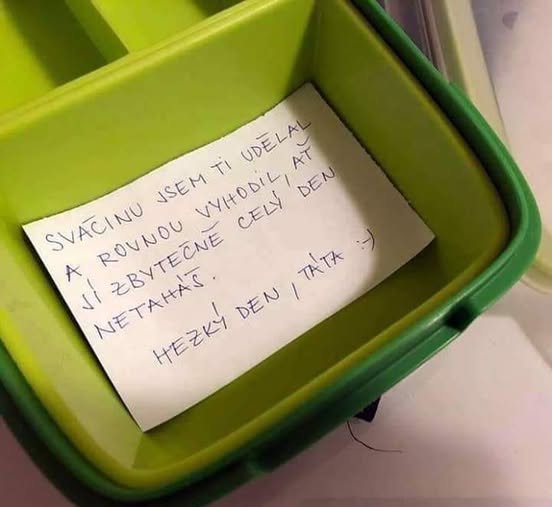 SVAČINU JSEM TI UDĚLAL
A ROVNOU VYHODIL, AŤ
JÍ ZBYTEČNĚ CELÝ DEN
NETAHÁŠ.
HEZKÝ DEN, TÁTA :-)